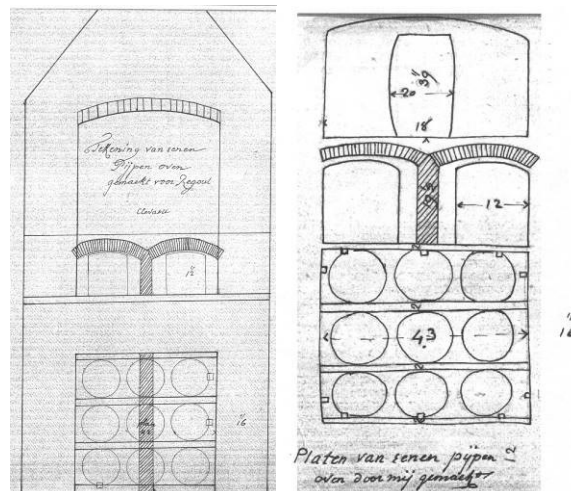 Tekening van eenen
Pijpen oven
gemaakt voor Regout
12
16
39
20
18
12
2
43
2
16
Platen van eenen pijpen
oven door mij gemaakt
12